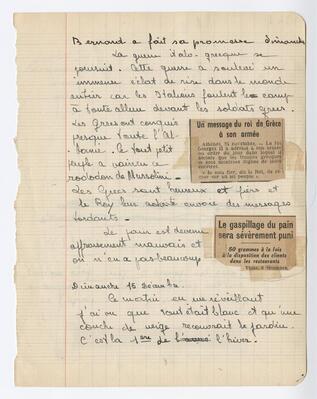 Bernard a fait sa première dimanche
La guerre italo-grecque se
poursuit. Cette guerre a soulevé un
immense éclat de rire dans le monde
entier car les Italiens foutent le camp
à toute allure devant les soldats Grecs.
Les Grecs ont conquis
presque toute l'Al-
banie. Le tout petit
peuple a vaincu
de Mussolini.
Les Grecs sont heureux et fiers et
le Roy leur adresse encore des messages
Un message du roi de Grèce
à son armée
Athènes, 25 novembre. — Le roi
Georges II a adressé à son armée
un ordre du jour dans lequel il
déclare que les troupes grecques
se sont montrées dignes de leurs
ancêtres.
« Je suis fier, dit le Roi, de
régner sur un tel peuple. »
Le pain est devenu
affreusement mauvais et
on n'en a pas beaucoup
Le gaspillage du pain
sera sévèrement puni
50 grammes à la fois
à la disposition des clients
dans les restaurants
Dimanche 15 Décembre.
Ce matin en me réveillant
j'ai vu que tout était blanc et qu'une
couche de neige recouvrait le jardin.
C'est la 1ère de l'hiver.